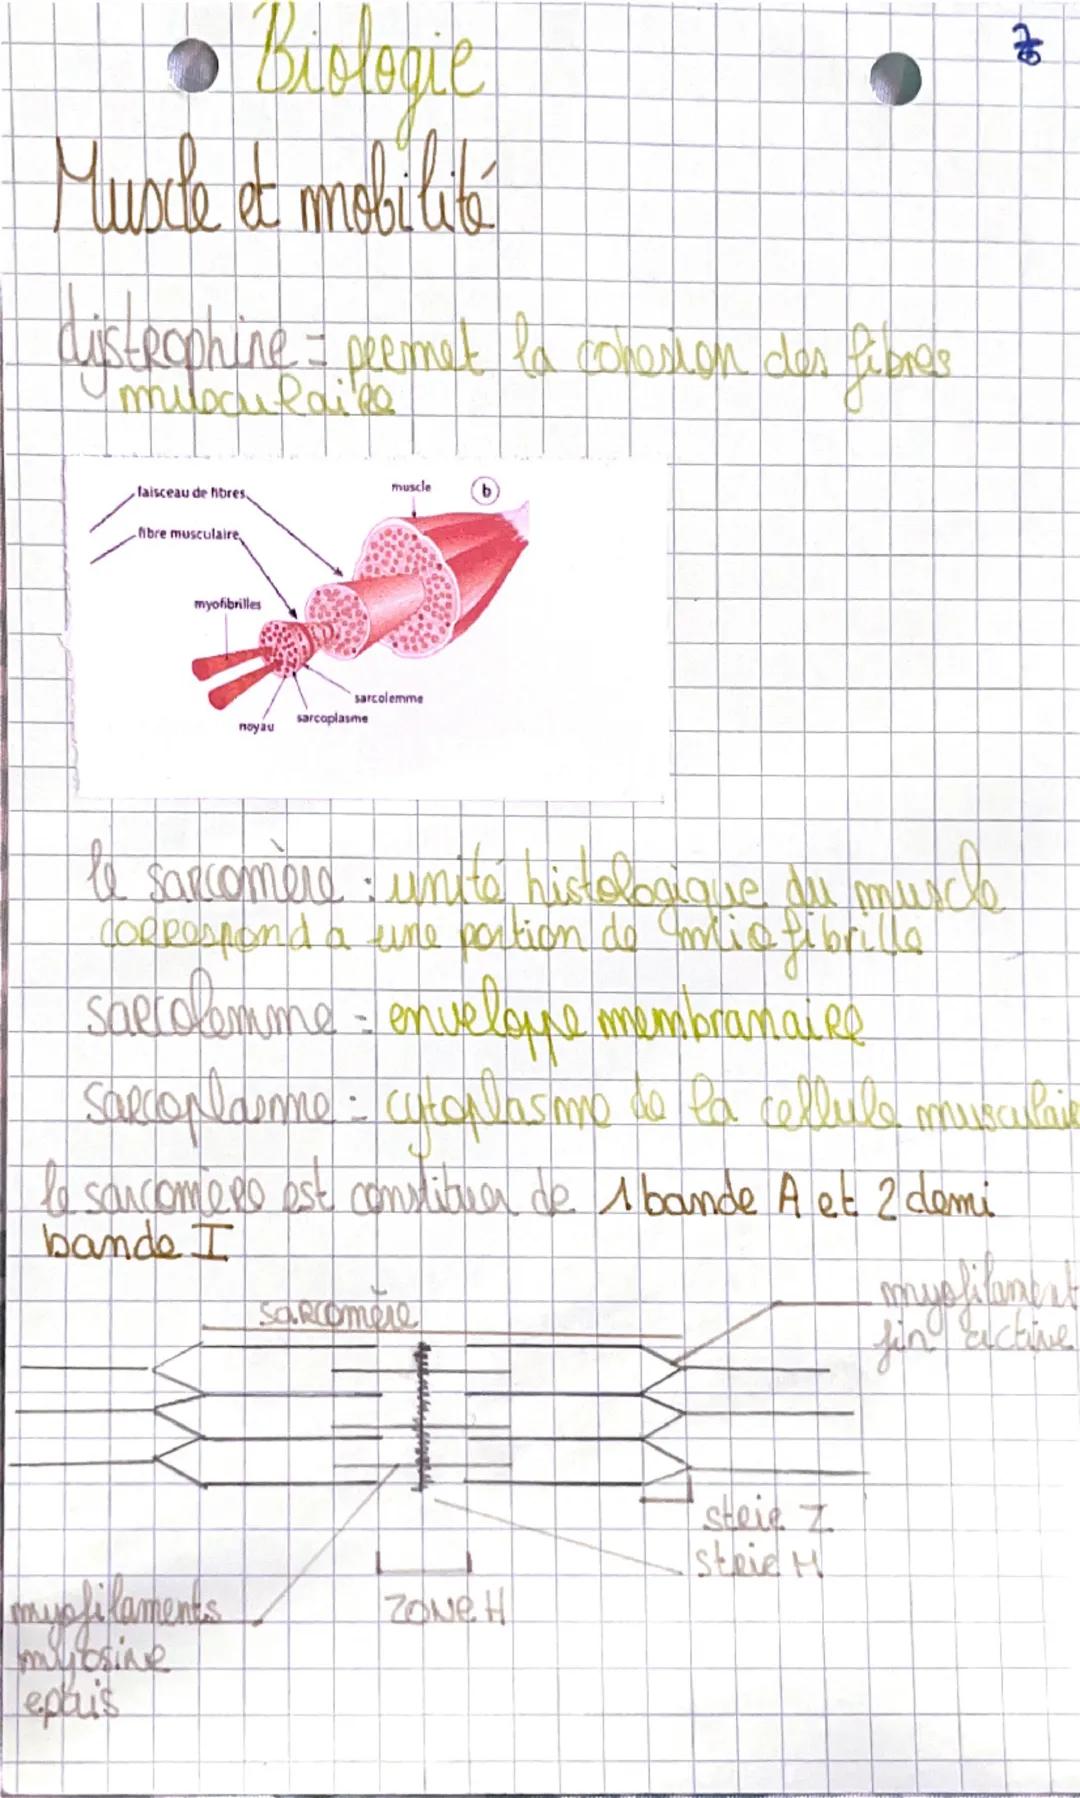 Biologie
Muscle et mobilité
dystrophine = permet la cohesion des fibres
musculaire
faisceau de fibres
muscle
b
fibre musculaire
myofibrilles
sarcolemme
sarcoplasme
noyau
le sarcomère : unité histologique du muscle
correspond a une portion de miofibrille
sarcolemme = enveloppe membranaire
sarcoplasme = cytoplasme de la cellule musculair
le sarcomère est constituer de 1 bande A et 2 demi
bande I
sarcomère
myofilament
fin actine
strie Z
strie M
myofilaments
ZONE H
myosine
epais